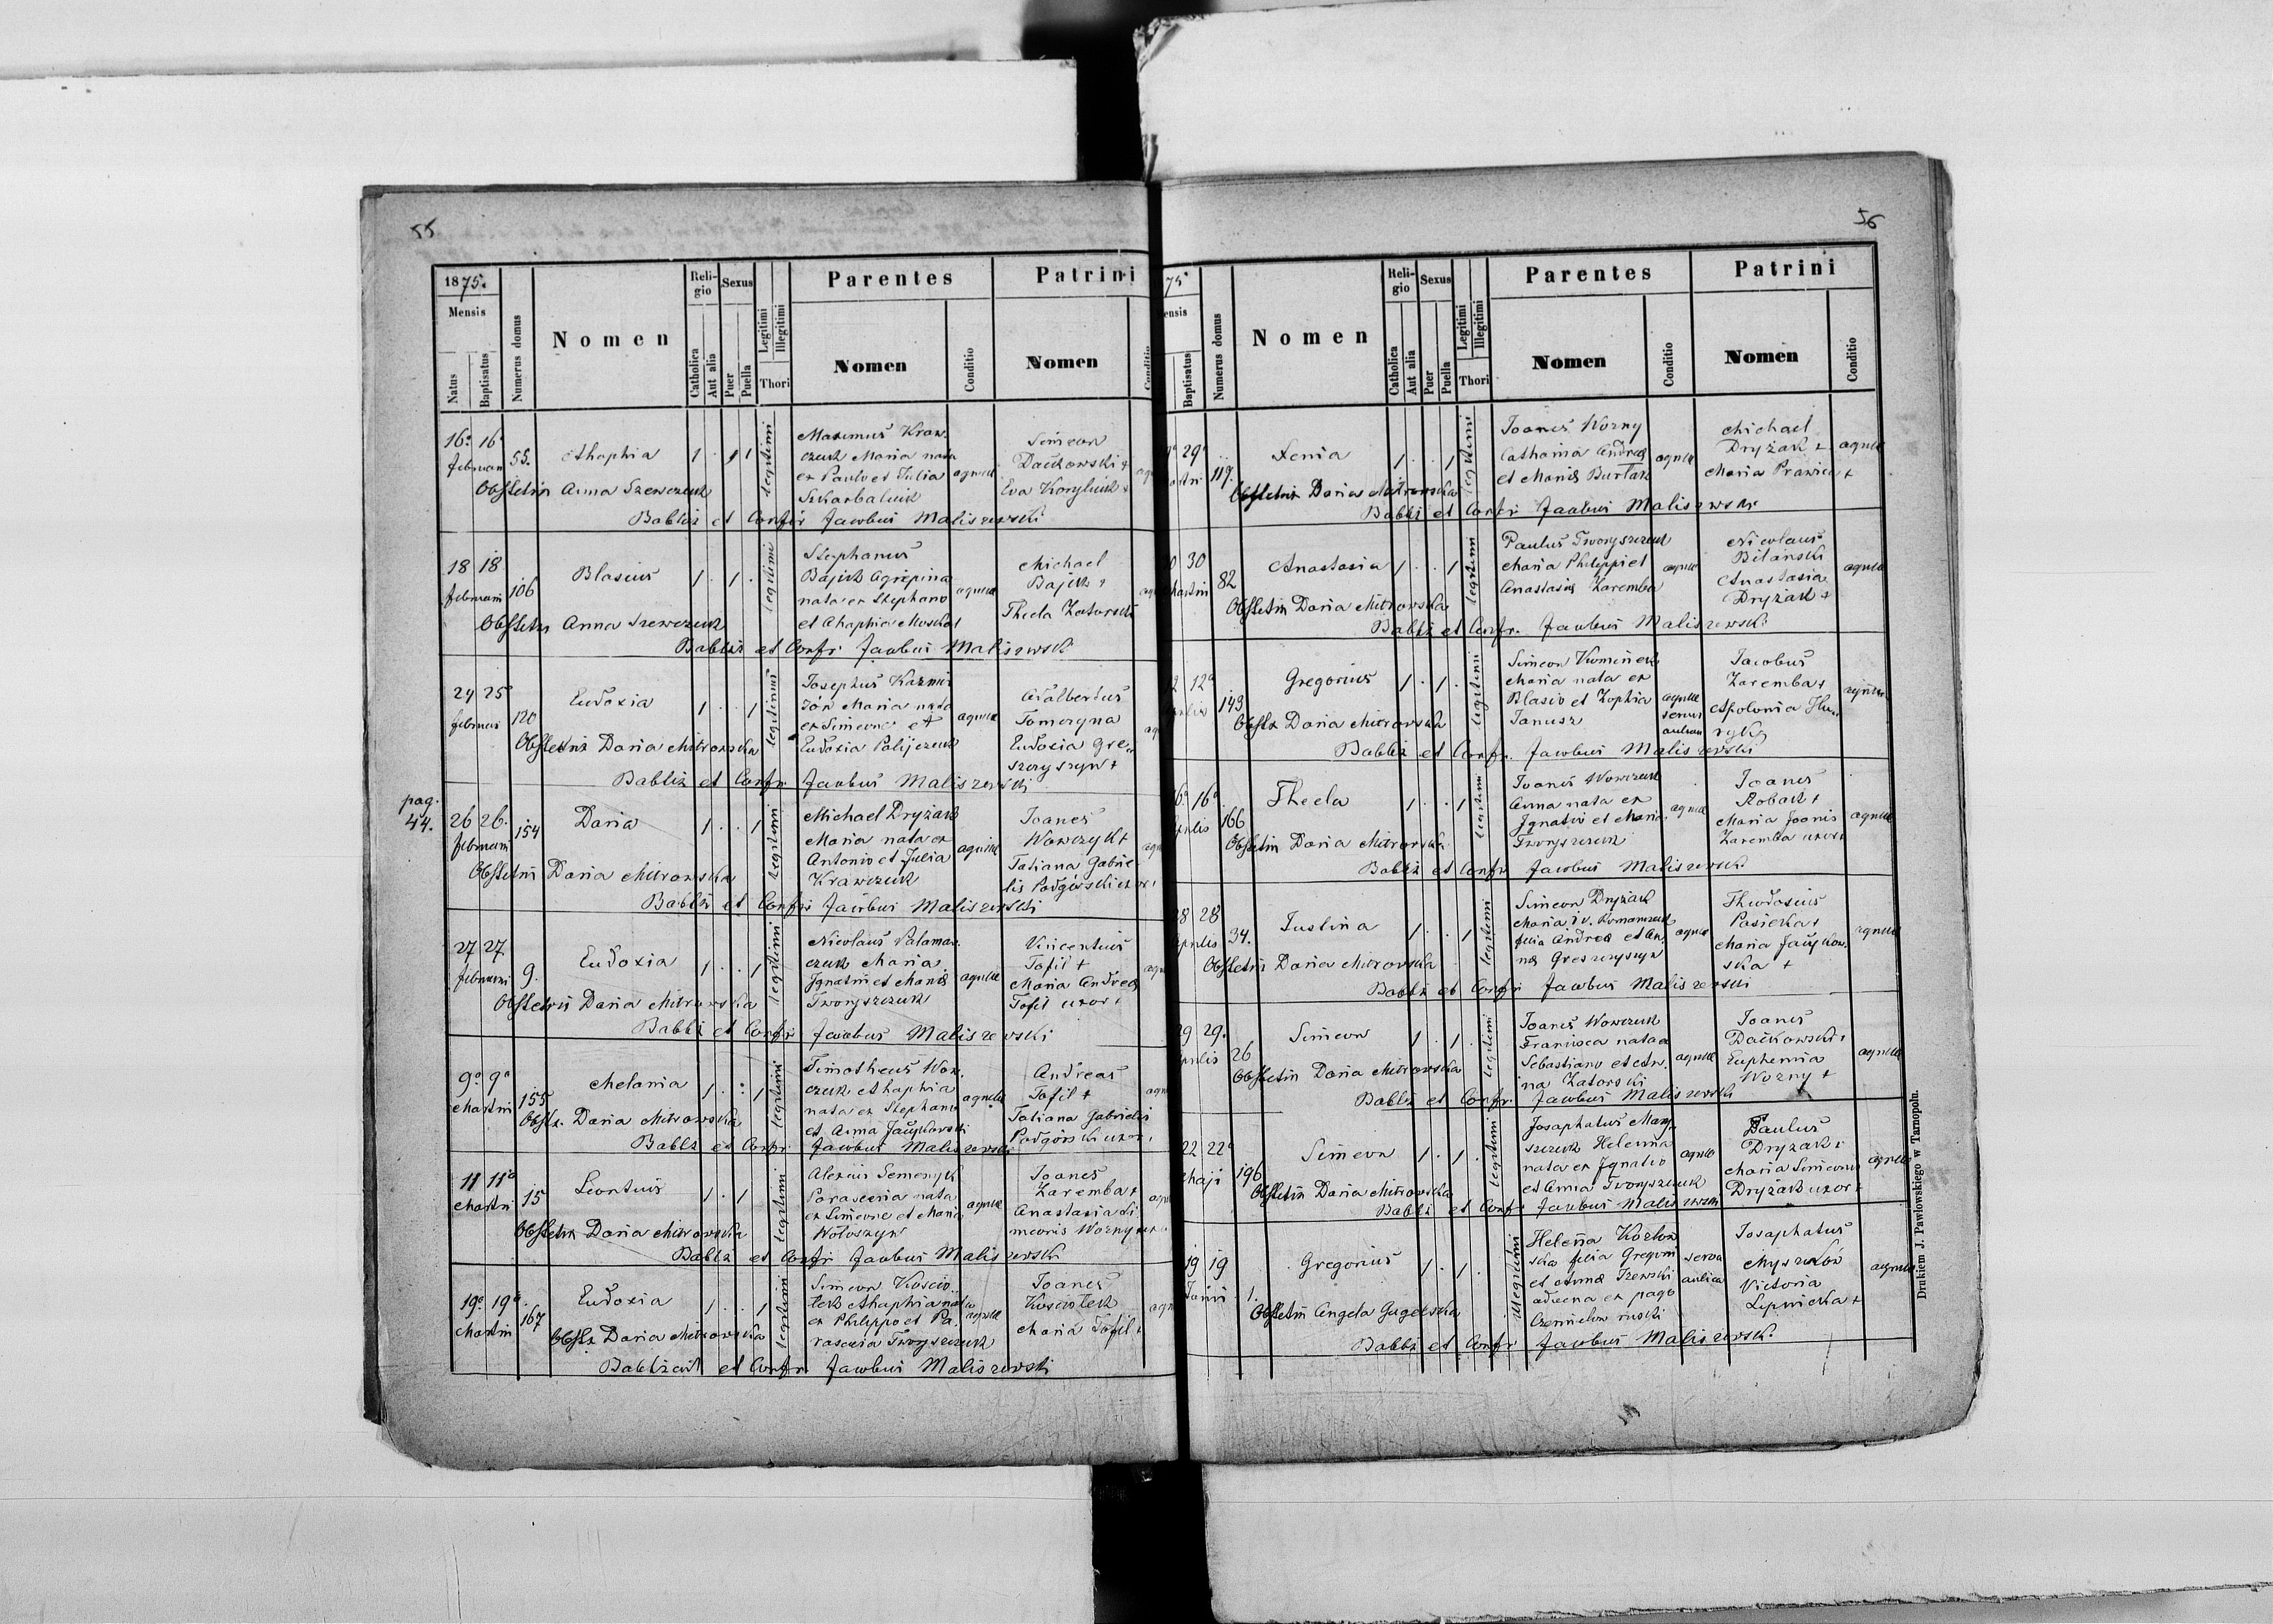 55
1875.
Mensis
Natus
Baptisatus
Numerus domus
Nomen
Religio
Catholica
Aut alia
Sexus
Puer
Puella
Legitimi
Illegitimi
Thori
Parentes
Nomen
Conditio
Patrini
Nomen
16a 16a
februarii 55. Ahaphia 1 . . 1 legitimi
Maximus Kraw-
czuk Maria nata
ex Paulo et Julia
Szkarbaluk
Simeon
Daćkowski +
Eva Koryluk +
Obstetrix Anna Szewczuk
Babtiz et Confir Jacobus Maliszewski
18 18
februarii 106 Blasius 1 . 1 . legitimi
Stephanus
Bajuk Agripina
nata ex Stephano
et Ahaphia Moskal
Michael
Bajuk +
Thecla Zatorski
Obstetrix Anna Szewczuk
Babtiz et Confir Jacobus Maliszewski
24 25
februarii 120 Eudoxia 1 . . 1 legitimi
Josephus Kazmir
Maria nata
ex Simeone et
Eudoxia Palijczuk
Adalbertus
Tomczyna
Eudoxia Gre-
szczyszyn +
Obstetrix Daria Mitrowska
Babtiz et Confir Jacobus Maliszewski
pag.
44.
26 26.
februarii 154 Daria 1 . . 1 legitimi
Michael Dryżak
Maria nata ex
Antonio et Julia
Krawczuk
Joanes
Wawczyk +
Tatiana Gabrie-
lis Podgórski uxor
Obstetrix Daria Mitrowska
Babtiz et Confir Jacobus Maliszewski
27 27
februarii 9. Eudoxia 1 . . 1 legitimi
Nicolaus Palamar-
czuk Maria
Ignatii et Mariæ
Tworyszczuk
Vincentius
Tofil +
Maria Andreæ
Tofil uxor +
Obstetrix Daria Mitrowska
Babtiz et Confir Jacobus Maliszewski
9a 9a
Martii 155 Melania 1 . . 1 legitimi
Timotheus Wow-
czuk Ahaphia
nata ex Stephano
et Anna
Andreas
Tofil +
Tatiana Gabrielis
Podgórski uxor
Obstx. Daria Mitrowska
Babtiz et Confir Jacobus Maliszewski
11 11a
Martii 15 Leontius 1 . 1 legitimi
Alexius Semenyk
Parascevia nata
ex Simeone et Maria
Wołoszyn
Joanes
Zaremba +
Anastasia Si-
meonis Wozny uxor
Obstetrix Daria Mitrowska
Babtiz et Confir Jacobus Maliszewski
19a 19a
Martii 167 Eudoxia 1 . . 1 legitimi
Simeon Koscio-
łek Ahaphia nata
ex Philippo et Pa-
rascevia Tworyszczuk
Joanes
Kosciołek
Maria Tofil +
Obstx Daria Mitrowska
Babtizavit et Confir Jacobus Maliszewski
56
75
ensis
Baptisatus
Numerus domus
Nomen
Religio
Catholica
Aut alia
Sexus
Puer
Puella
Legitimi
Illegitimi
Thori
Parentes
Nomen
Conditio
Patrini
Nomen
Conditio
29a
119. Xenia 1 . . 1 legitimi
Joanes Wozny
Catharina Andreæ
et Mariæ Burtak
Michael
Dryżak +
Maria Prawica +
Obstetrix Daria Mitrowska
Babtiz et Confir Jacobus Maliszewski
30
82 Anastasia 1 . . 1 legitimi
Paulus Tworyszczuk
Maria Philippi et
Anastasiæ Zaremba
Nicolaus
Bilanski
Anastasia
Dryżak +
Obstetrix Daria Mitrowska
Babtiz et Confr. Jacobus Maliszewski
12 12a
143 Gregorius 1 . 1 . legitimi
Simeon
Maria nata ex
Blasio et Zophia
Janusz
Jacobus
Zaremba +
Apolonia
Obstx Daria Mitrowska
Babtiz et Confr. Jacobus Maliszewski
16a 16a
Aprilis 166 Thecla 1 . . 1 legitimi
Joanes Wowczuk
Anna nata ex
Ignatio et Maria
Tworyszczuk
Joanes
Robak +
Maria Joanis
Zaremba uxor +
Obstetrix Daria Mitrowska
Babtiz et Confir Jacobus Maliszewski
28 28
Aprilis 34. Justina 1 . . 1 legitimi
Simeon Dryżak
Maria
filia Andreæ et An-
næ Greszczyszyn
Theodosius
Pasieka +
Maria
ska +
Obstetrix Daria Mitrowska
Babtiz et Confir Jacobus Maliszewski
29 29.
Aprilis 26 Simeon 1 . 1 . legitimi
Joanes Wowczuk
Francisca nata ex
Sebastiano et An-
na Zatorski
Joanes
Daćkowski +
Euphemia
Wozny +
Obstetrix Daria Mitrowska
Babtiz et Confr. Jacobus Maliszewski
22 22a
Maji 196 Simeon 1 . 1 . legitimi
Josaphatus
Helena
nata ex Ignatio
et Anna Tworyszczuk
Paulus
Dryżak +
Maria Simeonis
Dryżak uxor +
Obstetrix Daria Mitrowska
Babtiz et Confr Jacobus Maliszewski
19 19
Junii 1. Gregorius 1 . 1 . illegitimi
Helena Kozłow-
ska filia Gregorii
et Annæ
advena ex pago
serva
aulica
Josaphatus
Myszków
Victoria
Lipnicka +
Obstetrix Angela
Babtiz et Confr Jacobus Maliszewski
Drukiem J. Pawłowskiego w Tarnopolu.